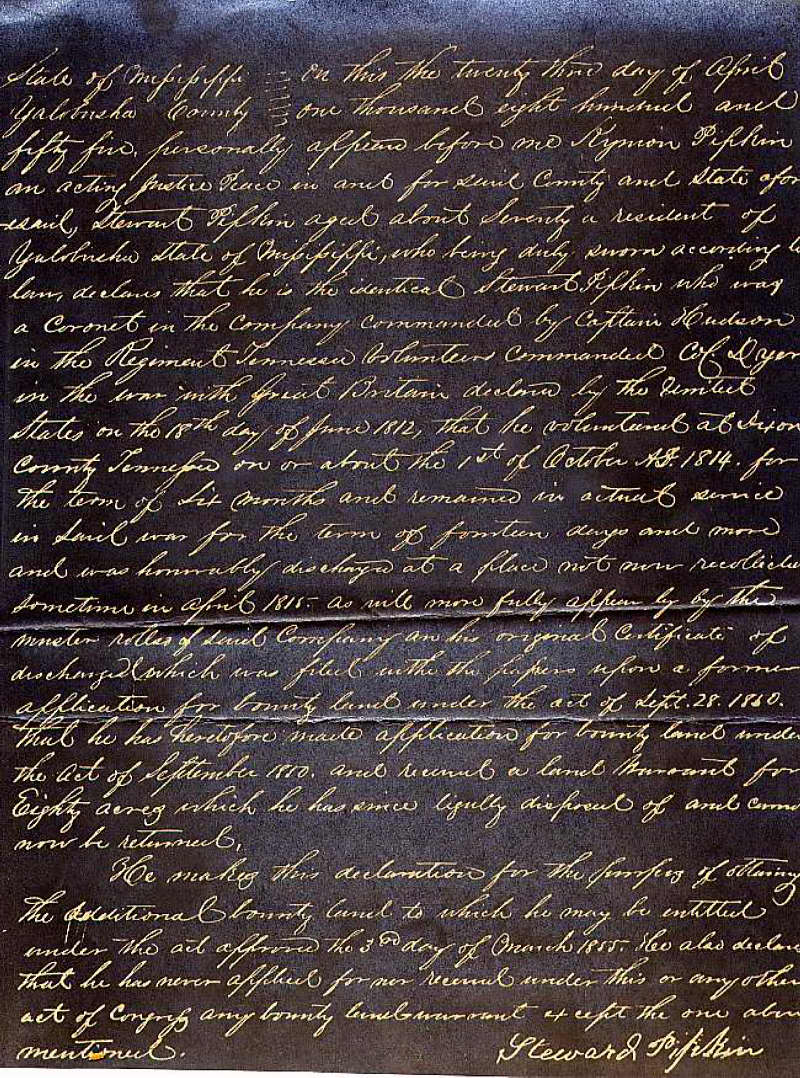 State of Mississippi On this the twenty third day of April
Yalobusha County one thousand eight hundred and
fifty five, personally appeared before me Kymon Pipkin
an acting Justice Peace in and for said County and State afor
esaid, Stewart Pipkin aged about Seventy a resident of
Yalobusha State of Mississippi, who being duly sworn according to
law, declares that he is the identical Stewart Pipkin who was
a Coronet in the company commanded by Captain Hudson
in the Regiment Tennessee Volunteers commanded Col. Dyer
in the war with Great Britain declared by the United
States on the 18th day of June 1812, that he volunteered at Dixon
County Tennessee on or about the 1st of October A.D. 1814. for
the term of Six months and remained in actual service
in said war for the term of fourteen days and more
and was honorably discharged at a place not now recollected
sometime in April 1815. as will more fully appear by by the
muster rolls of said Company an his original Certificate of
discharged which was filed withe the papers upon a former
application for bounty land under the act of Sept. 28. 1850.
that he has heretofore made application for bounty land under
the act of September 1850. and received a land Warrant for
Eighty acres which he has since legally disposed of and cannot
now be returned.
He makes this declaration for the purpos of obtaining
the additional bounty land to which he may be entitled
under the act approved the 3rd day of March 1855. He also declares
that he has never applied for nor received under this or any other
act of Congress any bounty land warrant except the one above
mentioned. Steward Pipkin